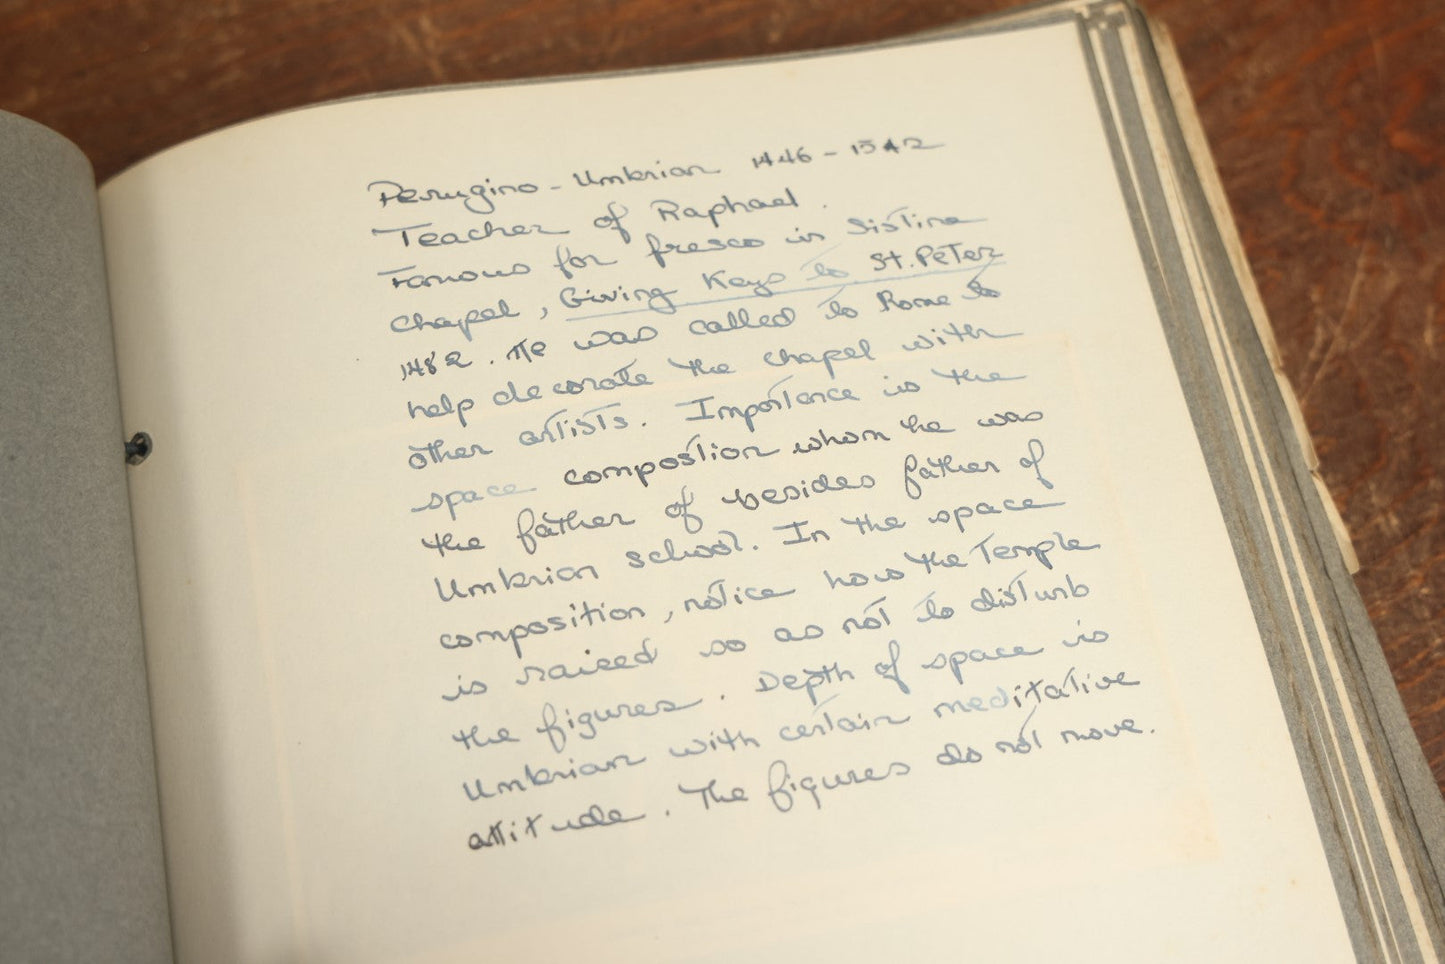 Perugino - Umbrian 1446 - 1542
Teacher of Raphael.
Famous for fresco in Sistine
Chapel, Giving Keys to St. Peter
1482. He was called to Rome to
help decorate the chapel with
other artists. Importance is the
space compostion whom he was
the father of besides father of
Umbrian school. In the space
composition, notice how the Temple
is raised so as not to disturb
the figures. Depth of space is
Umbrian with certain meditative
attitude. The figures do not move.